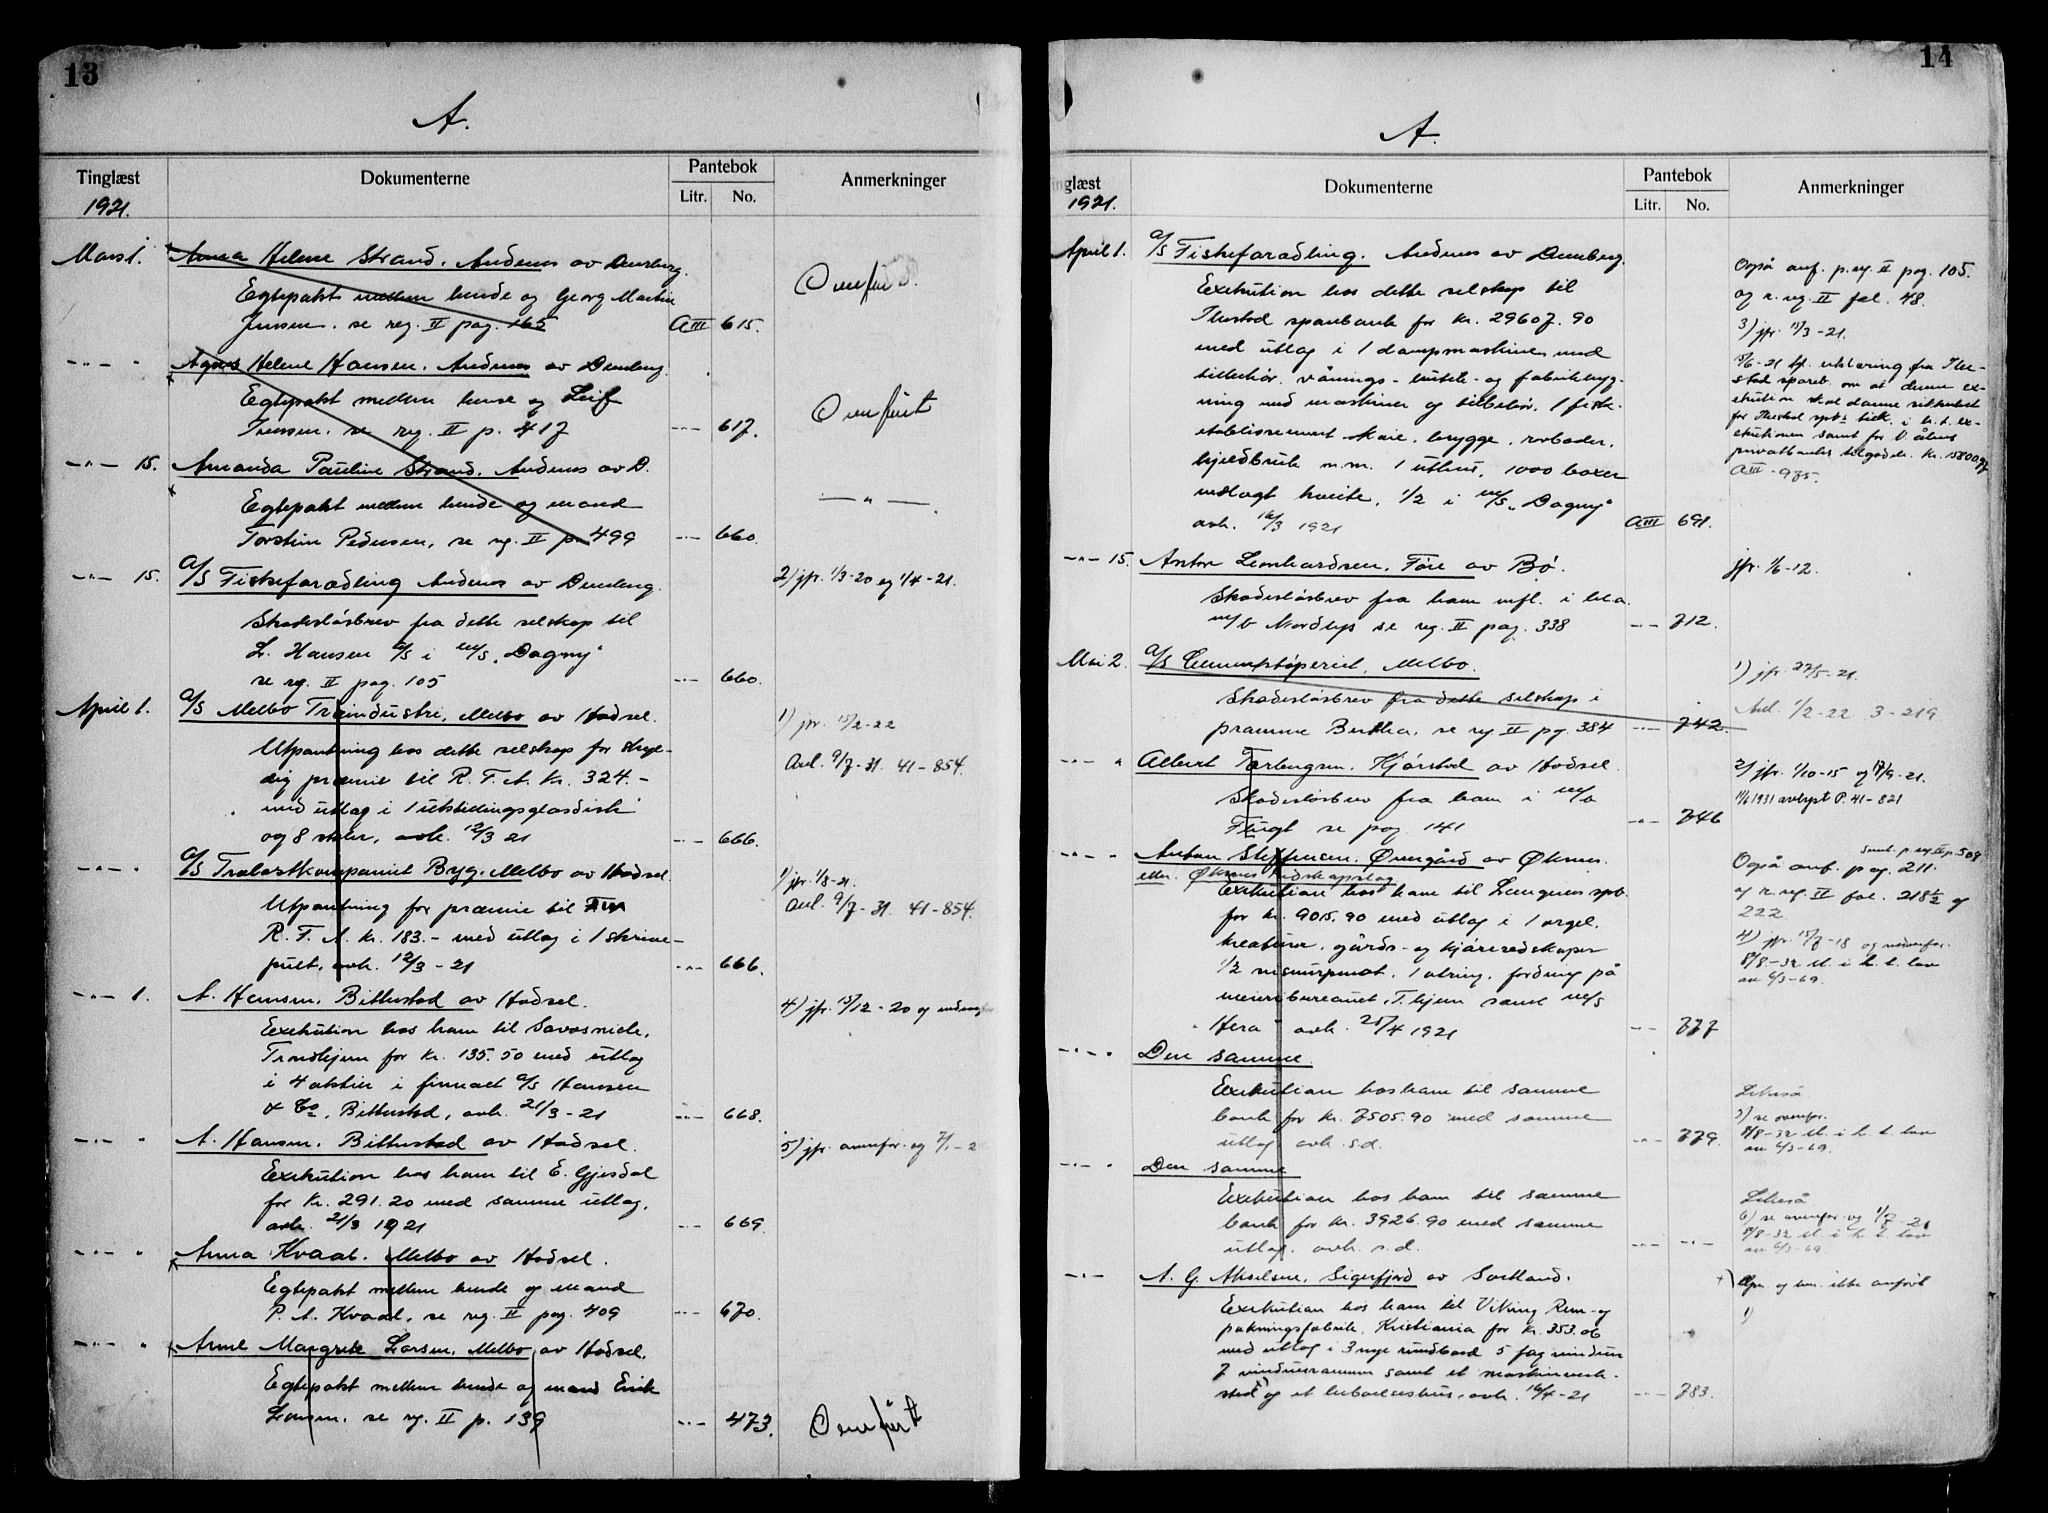 13
A.
Tinglæst
Dokumenterne
Pantebok
Litr. No.
Anmerkninger
1921.
Mars 1. Anna Helene Strand. Andenes av Dverberg.
Egtepakt mellem hende og Georg Martin
Jensen. se reg. II pag. 165 AIII 615. Overført.
-"- " Agnes Helene Hansen. Andenes av Dverberg.
Egtepakt mellem hende og Leif
Jensen. se reg. II p. 417 -"- 617. Overført
-"- 15. Amanda Pauline Strand. Andenes av D.
Egtepakt mellem hende og mand -"-
Torstein Pedersen, se reg. II p. 499 -"- 660.
-"- 15. A/S Fiskeforædling Andenes av Dverberg. 2) jfr. 1/3-20 og 1/4-21.
Skadesløsbrev fra dette selskap til
L. Hansen A/S i m/s "Dagny"
se reg. II pag. 105 -"- 660.
April 1. A/S Melbo Træindustri, Melbo av Hadsel. 1) jfr. 15/2-22
Utpantning hos dette selskap for skyl-
dig præmie til R. F. A. kr. 324.- Avl. 9/7-31. 41-854.
med utlag i 1 utstillingsglasdisk
og 8 stoler, avh. 12/3 21 -"- 666.
-"- " A/S Trælastkompaniet Byg. Melbo av Hadsel. 1) jfr. 1/8-21.
Utpantning for præmie til Avl. 9/7-31. 41-854.
R. F. A. kr. 183.- med utlag i 1 skrive-
pult, avh. 12/3-21 -"- 666.
-"- 1. A. Hansen. Bitterstad av Hadsel. 4) jfr. 15/12-20 og nedenfor
Exekution hos ham til
Trondhjem for kr. 135.50 med utlag
i 4 aktier i firmaet A/S Hansen
& Co, Bitterstad, avh. 21/3-21 -"- 668.
-"- " A. Hansen. Bitterstad av Hadsel. 5) jfr. ovenfor. og
Exekution hos ham til E. Gjesdal
for kr. 291.20 med samme utlag,
avh. 21/3 1921 -"- 669.
-"- " Anna Kvaal. Melbo av Hadsel.
Egtepakt mellem hende og mand
P. A. Kvaal, se reg. II pag. 409 -"- 670.
-"- " Anne Margrete Larsen, Melbo av Hadsel.
Egtepakt mellem hende og mand Erik
Larsen. se reg. II p. 139 -"- 473. Overført
14
A.
Tinglæst
Dokumenterne
Pantebok
Litr. No.
Anmerkninger
1921.
April 1. A/S Fiskeforædling. Andenes av Dverberg.
Exekution hos dette selskap til Også anf. p. reg. II pag. 105.
sparebank for kr. 29607.90 og r. reg. II fol. 48.
med utlag i 1 dampmaskine med 3) jfr. 15/3-21.
tilbehør, vånings- og fabrikbyg-
ning med maskiner og tilbehør. 1 fisk-
etablissement kaie, brygge, rorboder,
hjeldbruk m.m. 1 uthus, 1000 boxer
nedlagt hvite, 1/2 i m/s "Dagny" AIII-975.
avh. 16/3 1921 AIII 691.
-"- 15. Anton Leonhardsen, Føre av Bø. jfr. 1/6-12.
Skadesløsbrev fra ham mfl. i bl.a.
m/b Nordlys se reg. II pag. 338 -"- 712.
Mai 2. A/S Cementstøperiet, Melbo. 1) jfr. 27/5-21.
Skadesløsbrev fra dette selskap i Avl. 1/2-22 3-219
pramme Bertha, se reg. II pg. 384 -"- 742.
-"- " Albert Torbergsen. Kjørstad av Hadsel. 2) jfr. 1/10-15 og 17/9-21.
Skadesløsbrev fra ham i m/b 11/6 1931 avlyst P. 41-821
Flugt se pag. 141 -"- 746
-"- " Anton Steffensen. Øvergård av Øksnes. Samt. p. reg. II p. 508
eller. Øksnes redskapslag Også anf. pag. 211.
Exekution hos ham til Langenes spb. og r. reg. II fol. 218 1/2 og
for kr. 9015.90 med utlag i 1 orgel, 222.
kreaturer, gårds- og kjøreredskaper 4) jfr. 15/7-18 og nedenfor.
1/2 1 ring, fordring på 8/8-32 sl. i h. t. lov
meieribureauet, T.hjem samt m/s av 6/3-69.
"Hera" avh. 25/4 1921 -"- 777
-"- " Den samme.
Exekution hos ham til samme Likeså
bank for kr. 7505.90 med samme 5) se ovenfor.
utlag avh. s.d. -"- 779. 8/8-32 sl. i h. t. lov
av 6/3-69.
-"- " Den samme
Exekution hos ham til samme Likeså
bank for kr. 3926.90 med samme 6) se ovenfor og 1/7-21
utlag. avh. s.d. -"- -"- 8/8-32 sl. i h. t. lov
av 6/3-69.
-"- A. G. Akselsen, Sigerfjord av Sortland.
Exekution hos ham til Viking Rem- og 1)
pakningsfabrik, Kristiania for kr. 353.06
med utlag i 3 nye rundbord 5 fag vinduer
7 vinduesrammer samt et maskinverk-
sted og et beboelseshus, avh. 16/4-21 -"- 783.